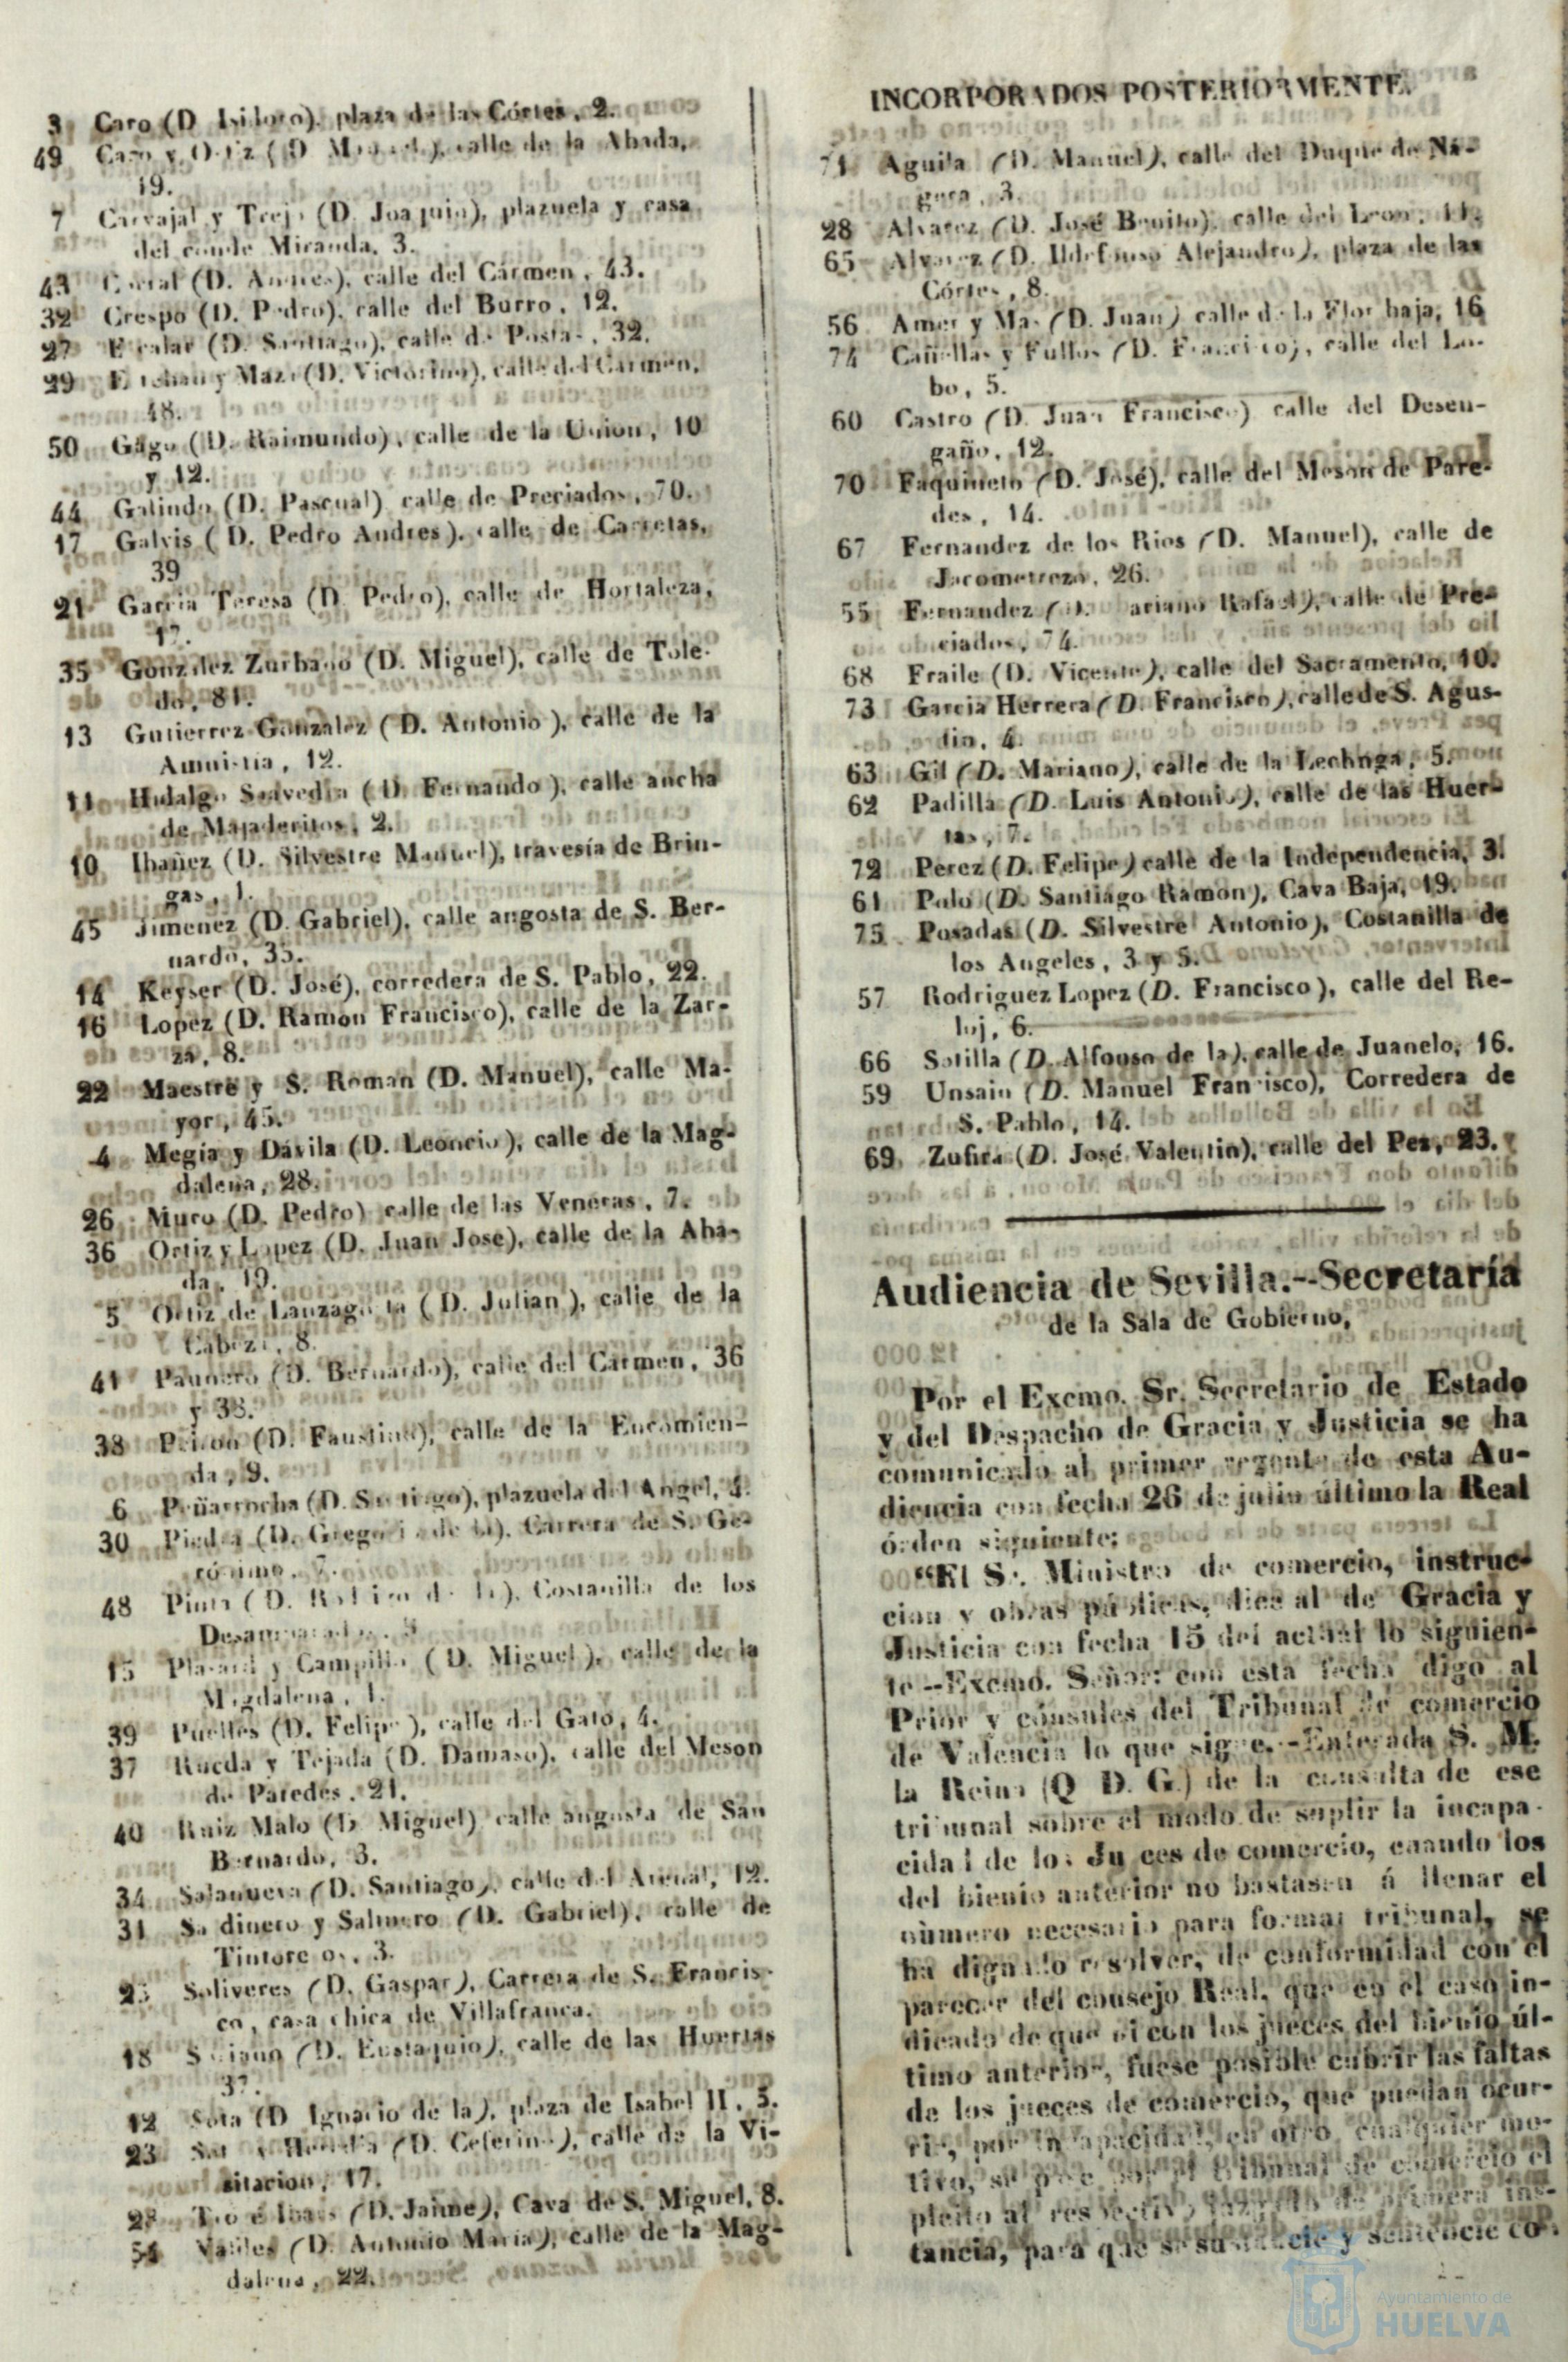 3 Caro (D. Isidoro), plaza de las Córtes, 2.
49 Caro y Ortiz (D. calle de la Abada,
19.
7 Carvajal y Trejo (D. Joaquin), plazuela y casa
del conde Miranda, 3.
43 (D. calle del Cármen, 43.
32 Crespo (D. Pedro), calle del Burro, 12.
27 (D. Santiago), calle de Postas, 32.
29 (D. Victorino), calle del Carmen,
48.
50 Gago (D. Raimundo), calle de la Union, 10
y 12.
44 Galindo (D. Pascual) calle de Preciados, 70.
17 Galvis (D. Pedro Andres), calle de Carretas,
39
21 Garcia Teresa (D. Pedro), calle de Hortaleza,
17.
35 Gonzalez Zurbano (D. Miguel), calle de Tole-
do, 81.
13 Gutierrez Gonzalez (D. Antonio), calle de la
Amnistia, 12.
11 Hidalgo Saavedra (D. Fernando), calle ancha
de Majaderitos, 2.
10 Ibañez (D. Silvestre Manuel), travesía de Brin-
gas, 1.
45 Jimenez (D. Gabriel), calle angosta de S. Ber-
nardo, 35.
14 Keyser (D. José), corredera de S. Pablo, 22.
16 Lopez (D. Ramon Francisco), calle de la Zar-
za, 8.
22 Maestre y S. Roman (D. Manuel), calle Ma-
yor, 45.
4 Megia y Dávila (D. Leoncio), calle de la Mag-
dalena, 28.
26 Muro (D. Pedro) calle de las Veneras, 7.
36 Ortiz y Lopez (D. Juan Jose), calle de la Aba-
da, 19.
5 Ortiz de Lanzagorta (D. Julian), calle de la
Cabeza, 8.
41 (D. Bernardo), calle del Carmen, 36
y 38.
38 (D. Faustino), calle de la Encomien-
da, 9.
6 Peñarrocha (D. Santiago), plazuela del Angel, 4.
30 Piedra (D. Gregorio de la), Carrera de S. Ge-
rónimo, 7.
48 (D. de la), Costanilla de los
Desamparados,
15 y Campillo (D. Miguel), calle de la
Magdalena, 1.
39 Puelles (D. Felipe), calle del Gato, 4.
37 Rueda y Tejada (D. Damaso), calle del Meson
de Paredes, 21.
40 Ruiz Malo (D. Miguel) calle angosta de San
Bernardo, 3.
34 Salanueva (D. Santiago), calle del Arenal, 12.
31 y Salmero (D. Gabriel), calle de
Tintoreros, 3.
Soliveres (D. Gaspar), Carrera de S. Francis-
co, casa chica de Villafranca.
18 Soriano (D. Eustaquio), calle de las Huertas
37.
12 Sota (D. Ignacio de la), plaza de Isabel II, 5.
23 (D. Ceferino), calle de la Vi-
sitacion, 17.
(D. Jaime), Cava de S. Miguel, 8.
54 Valdes (D. Antonio Maria), calle de la Mag-
dalena, 22.
INCORPORADOS POSTERIORMENTE.
71 Aguila (D. Manuel), calle del Duque de Ná-
gera, 3.
28 Alvarez (D. José Benito), calle del Leon, 11.
65 Alvarez (D. Ildefonso Alejandro), plaza de las
Córtes, 8.
56 Amer y Mas (D. Juan) calle de la Flor baja, 16
74 Cañellas y Fullos (D. Francisco), calle del Lo-
bo, 5.
60 Castro (D. Juan Francisco) calle del Desen-
gaño, 12.
70 Faquineto (D. José), calle del Meson de Pare-
des, 14.
67 Fernandez de los Rios (D. Manuel), calle de
Jacometrezo, 26.
55 Fernandez (D. Mariano Rafael), calle de Pre-
ciados, 74.
68 Fraile (D. Vicente), calle del Sacramento, 10.
73 Garcia Herrera (D. Francisco), calle de S. Agus-
tin, 4.
63 Gil (D. Mariano), calle de la Lechuga, 5.
62 Padilla (D. Luis Antonio), calle de las Huer-
tas, 7.
72 Perez (D. Felipe) calle de la Independencia, 3.
61 Polo (D. Santiago Ramon), Cava Baja, 19.
75 Posadas (D. Silvestre Antonio), Costanilla de
los Angeles, 3 y 5.
57 Rodriguez Lopez (D. Francisco), calle del Re-
loj, 6.
66 Sotilla (D. Alfonso de la), calle de Juanelo, 16.
59 Unsain (D. Manuel Francisco), Corredera de
S. Pablo, 14.
69 Zufira (D. José Valentin), calle del Pez, 23.
Audiencia de Sevilla.--Secretaría
de la Sala de Gobierno,
Por el Excmo. Sr. Secretario de Estado
y del Despacho de Gracia y Justicia se ha
comunicado al primer regente de esta Au-
diencia con fecha 26 de julio último la Real
órden siguiente:
"El Sr. Ministro de comercio, instruc-
cion y obras públicas, dice al de Gracia y
Justicia con fecha 15 del actual lo siguien-
te--Excmo. Señor: con esta fecha digo al
Prior y cónsules del Tribunal de comercio
de Valencia lo que sigue.-Enterada S. M.
la Reina (Q. D. G.) de la consulta de ese
tribunal sobre el modo de suplir la incapa-
cidad de los Jueces de comercio, cuando los
del bienio anterior no bastasen á llenar el
número necesario para formar tribunal, se
ha dignado resolver, de conformidad con el
parecer del consejo Real, que en el caso in-
dicado de que ni con los jueces del bienio úl-
timo anterior, fuese posible cubrir las faltas
de los jueces de comercio, que puedan ocur-
rir, por incapacidad, en otro cualquier mo-
tivo, se pase por el tribunal de comercio el
pleito al respectivo juzgado de primera ins-
tancia, para que se sustancie y sentencie co-
Ayuntamiento de
HUELVA